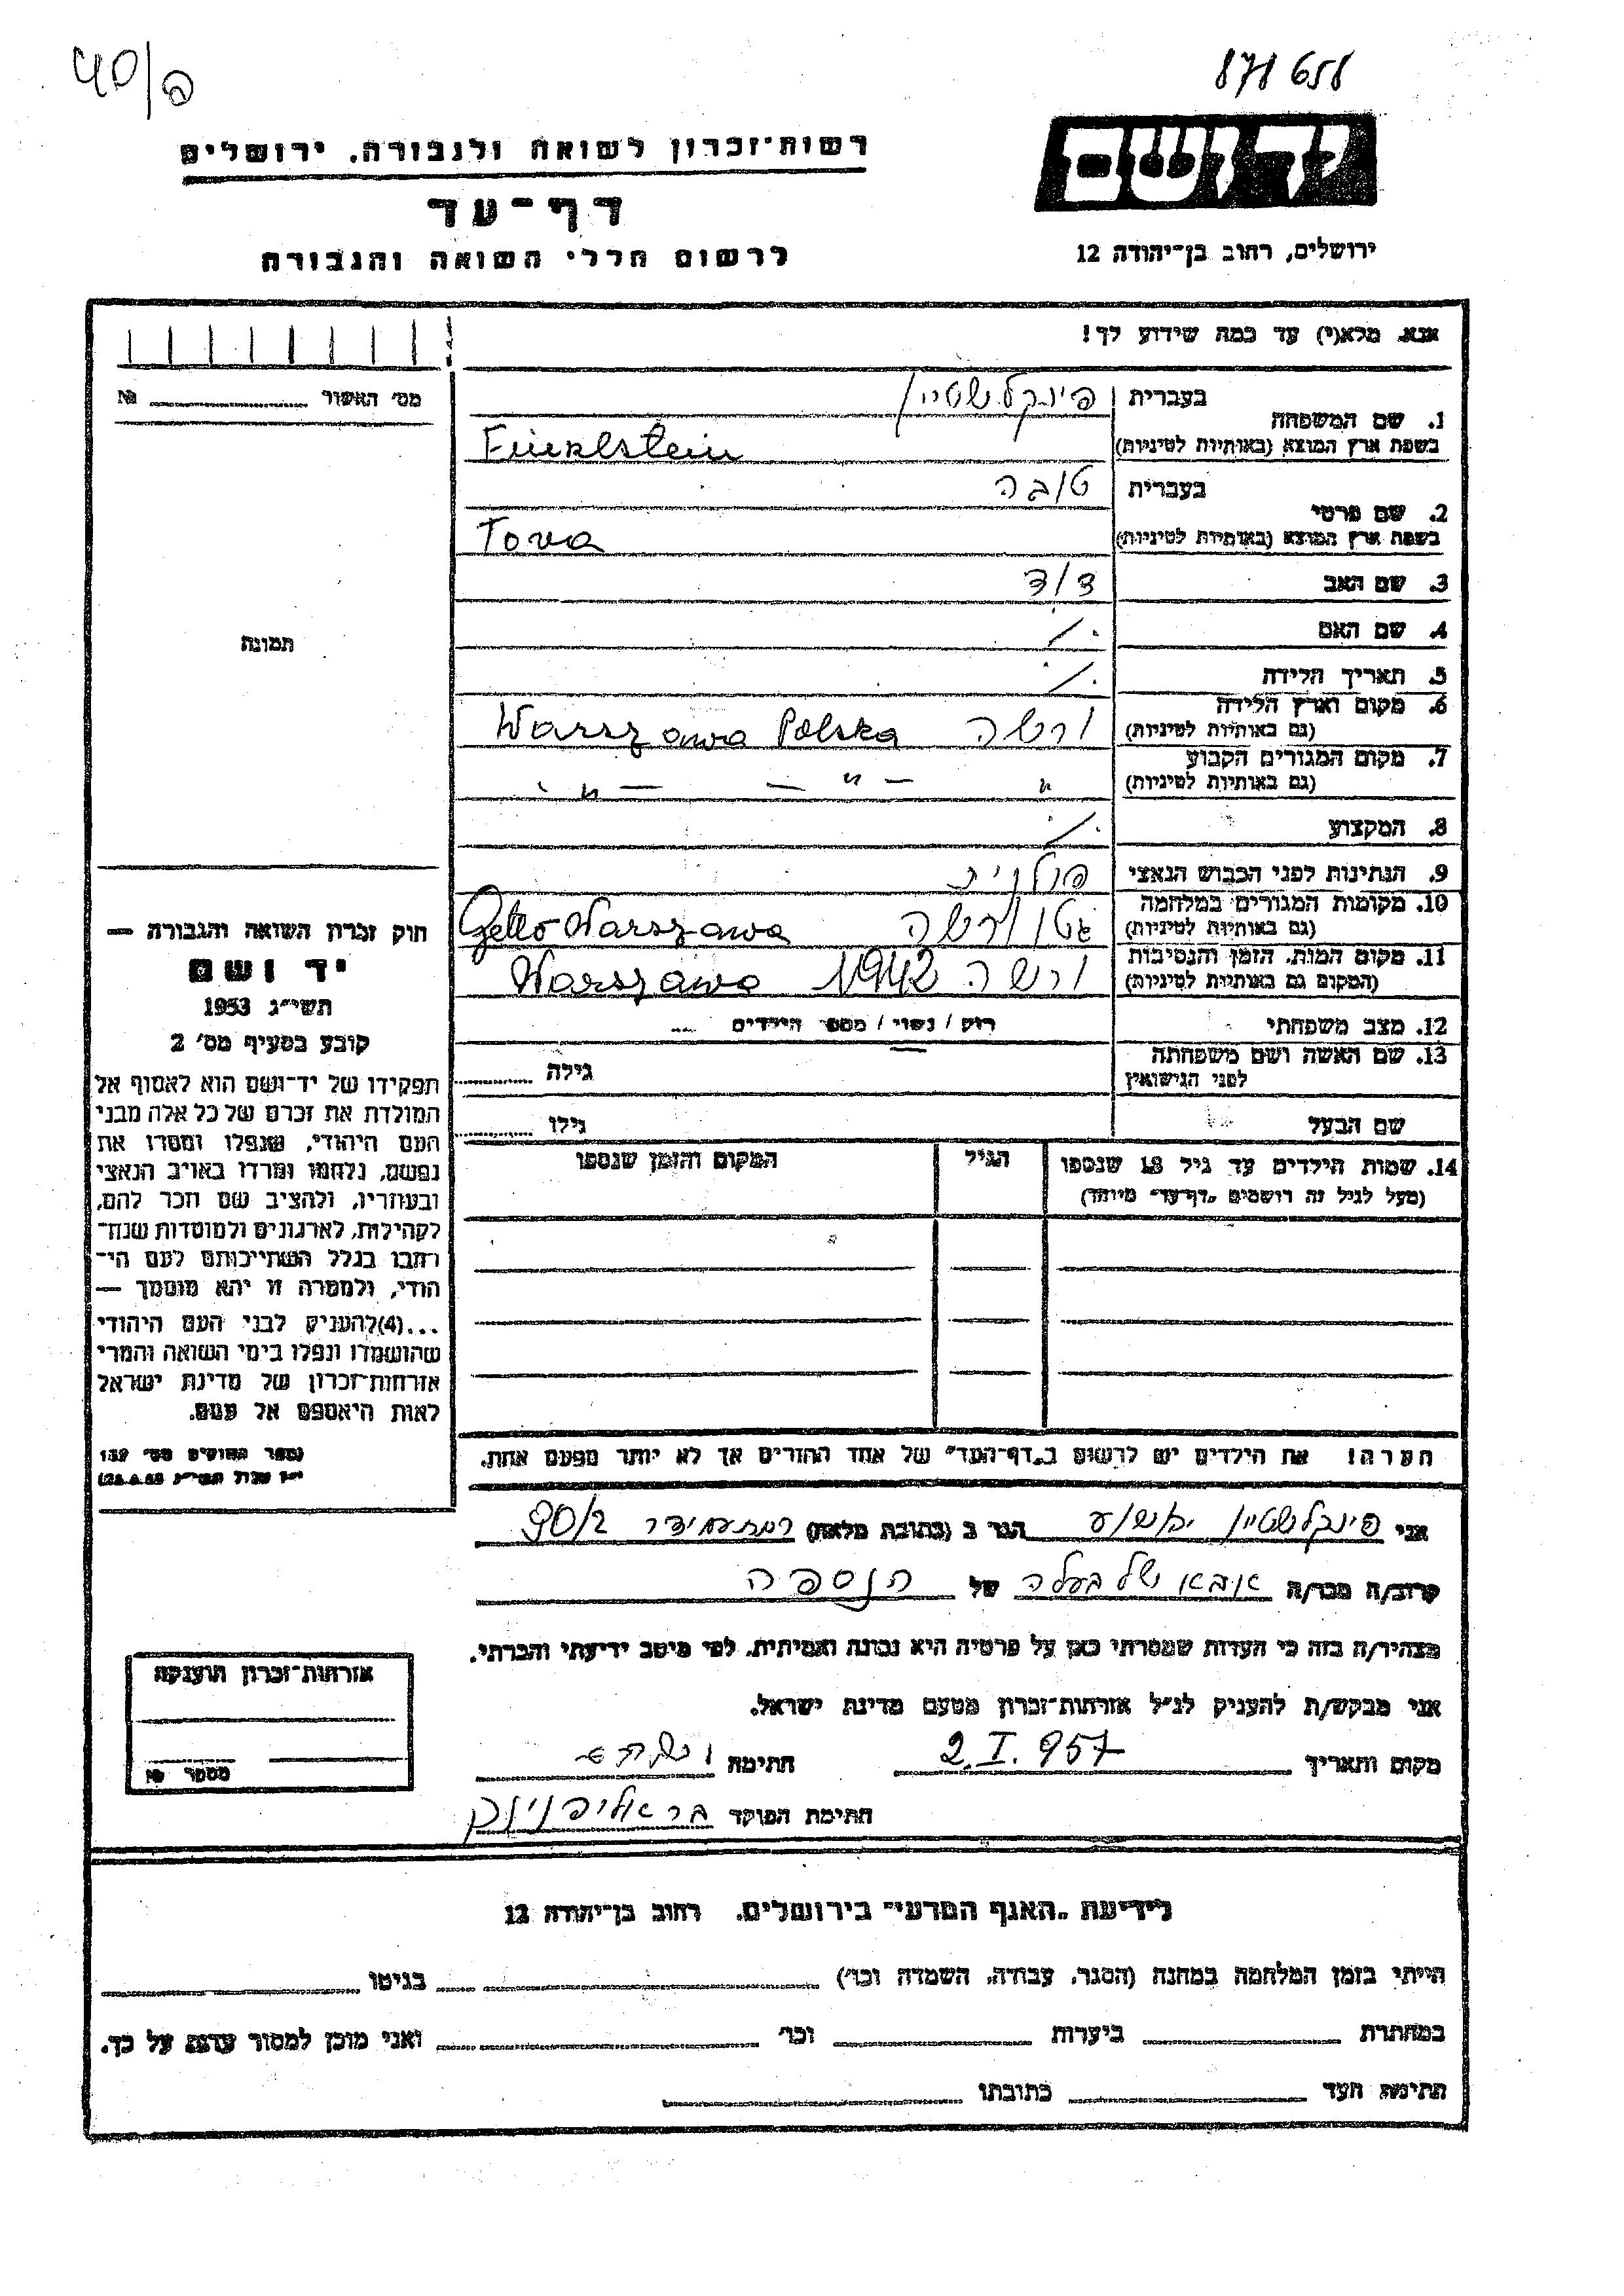 40/פ
871658
יד ושם
רשות-זכרון לשואה ולגבורה, ירושלים
דף-עד
לרשום חללי השואה והגבורה
ירושלים, רחוב בן-יהודה 12
אנא, מלא(י) עד כמה שידוע לך!
מס׳ האשור № 
1. שם המשפחה בעברית פינקלשטיין
בשפת ארץ המוצא (באותיות לטיניות) Finkelstein
2. שם פרטי בעברית טובה
בשפת ארץ המוצא (באותיות לטיניות) Towa
3. שם האב דוד
4. שם האם ./.
5. תאריך הלידה ./.
6. מקום וארץ הלידה
(גם באותיות לטיניות) ורשה Warszawa Polska
7. מקום המגורים הקבוע
(גם באותיות לטיניות) " — " — — " —
8. המקצוע ./.
9. הנתינות לפני הכבוש הנאצי פולנית
10. מקומות המגורים במלחמה
(גם באותיות לטיניות) גטו ורשה Getto Warszawa
11. מקום המות, הזמן והנסיבות
(המקום גם באותיות לטיניות) ורשה 1942 Warszawa
12. מצב משפחתי רוק / נשוי / מספר הילדים
13. שם האשה ושם משפחתה
לפני הנישואין גילה
שם הבעל גילו
14. שמות הילדים עד גיל 18 שנספו הגיל המקום והזמן שנספו
(מעל לגיל זה רושמים „דף-עד" מיוחד)
הערה! את הילדים יש לרשום ב„דף-העד" של אחד ההורים אך לא יותר מפעם אחת.
תמונה
חוק זכרון השואה והגבורה —
יד ושם
תשי״ג 1953
קובע בסעיף מס׳ 2
תפקידו של יד-ושם הוא לאסוף אל
המולדת את זכרם של כל אלה מבני
העם היהודי, שנפלו ומסרו את
נפשם, נלחמו ומרדו באויב הנאצי
ובעוזריו, ולהציב שם וזכר להם,
לקהילות, לארגונים ולמוסדות שנח-
רבו בגלל השתייכותם לעם הי-
הודי, ולמטרה זו יהא מוסמך —
...(4)להעניק לבני העם היהודי
שהושמדו ונפלו בימי השואה והמרי
אזרחות-זכרון של מדינת ישראל
לאות היאספם אל עמם.
(ספר החוקים מס׳ 132
אני פינקלשטיין יהושע הגר ב (כתובת מלאה) 90/2
קרוב/ה מכר/ה אבא של בעלה של הנספה
מצהיר/ה בזה כי העדות שמסרתי כאן על פרטיה היא נכונה ואמיתית, לפי מיטב ידיעתי והכרתי.
אני מבקש/ת להעניק לנ״ל אזרחות-זכרון מטעם מדינת ישראל.
מקום ותאריך 2.I.957 חתימה
חתימת הפוקד
אזרחות-זכרון הוענקה
מספר №
לידיעת „האגף המדעי" בירושלים, רחוב בן-יהודה 12
הייתי בזמן המלחמה במחנה (הסגר, עבודה, השמדה וכו׳) בגיטו
במחתרת ביערות וכו׳ ואני מוכן למסור עדות על כך.
חתימת העד כתובתו